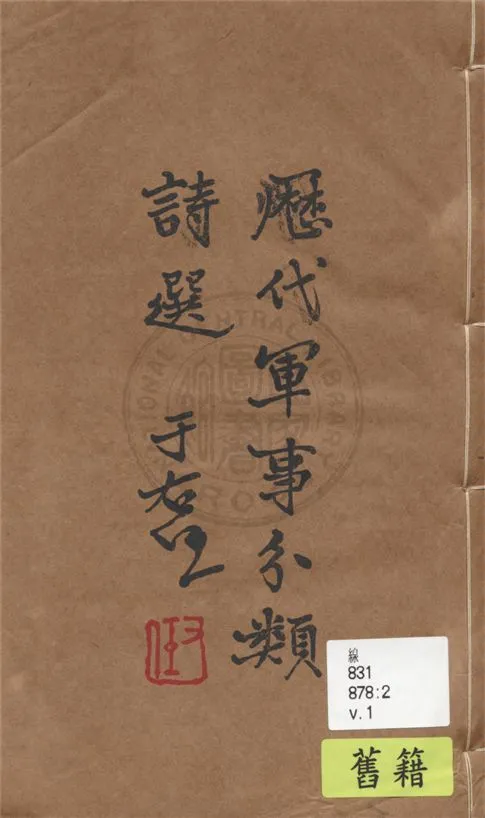 歷代軍事分類
詩選 于右任
線
831
878:2
v.1
舊籍
NATIONAL CENTRAL LIBRARY